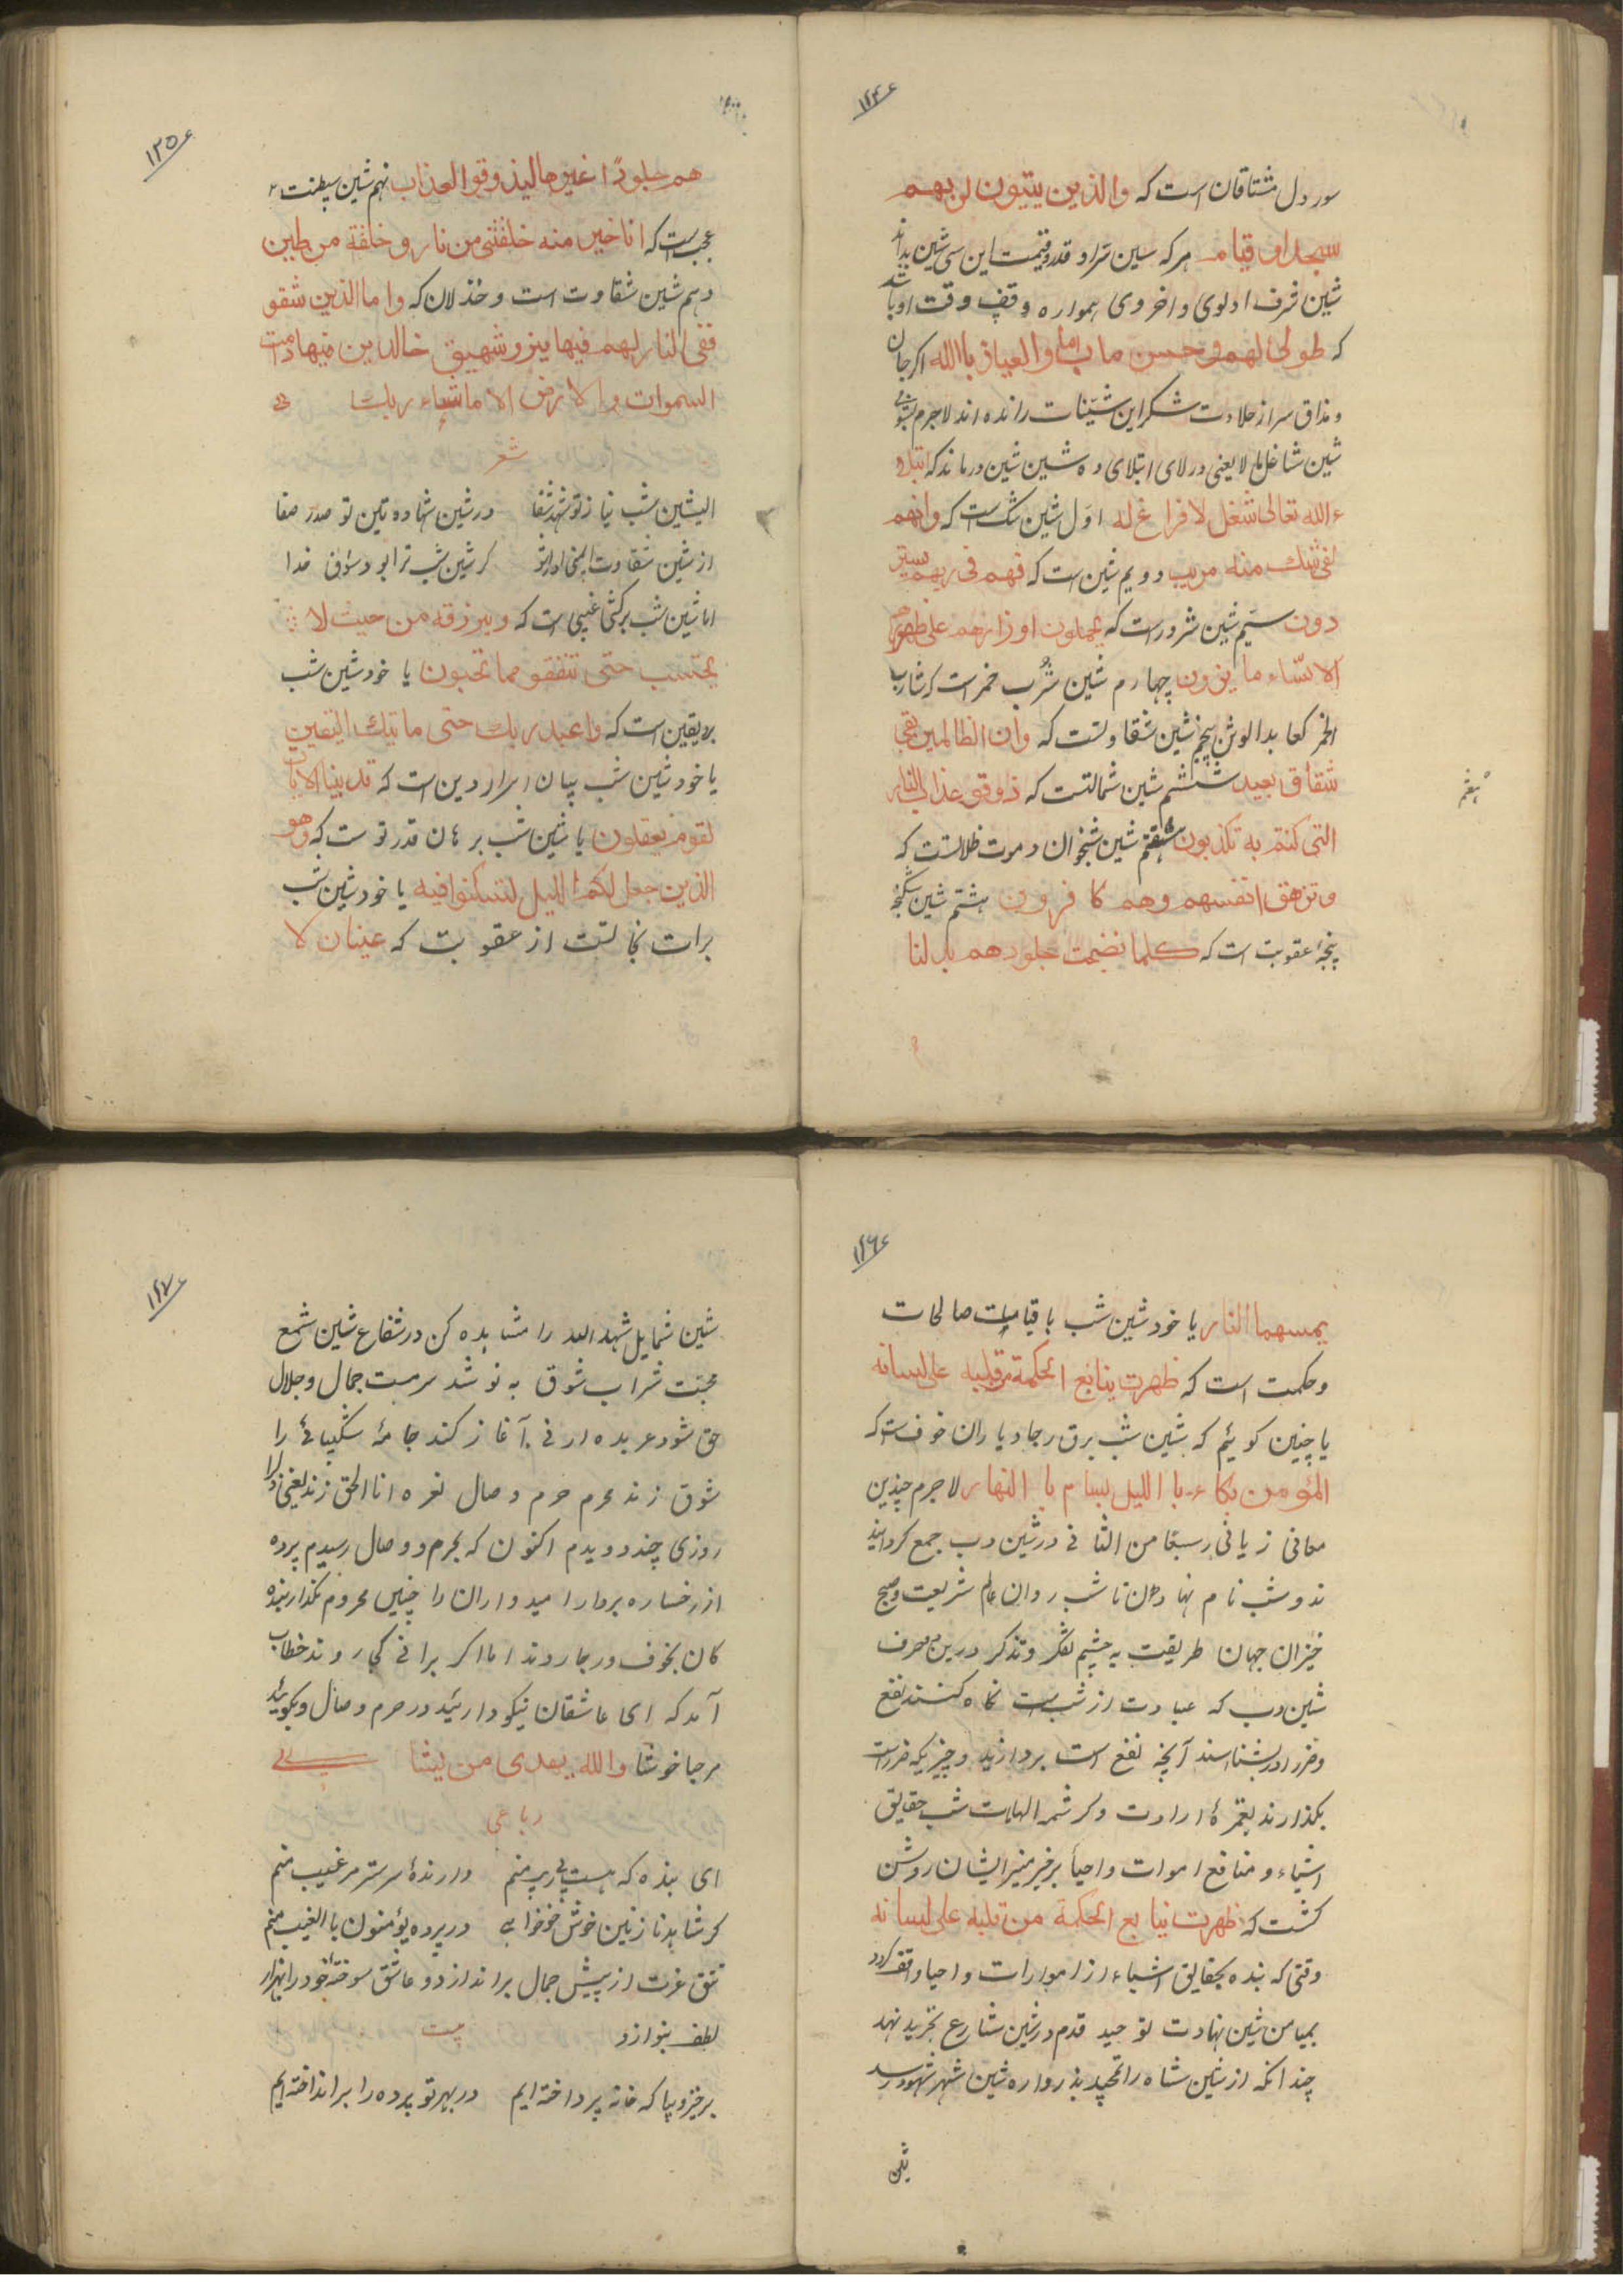 ۱۲۴
سور دل مشتاقان است که والذین یبتیون لربهم
سجدا و قیام هر که سین سراو قدر و قیمت این سی شین بداند
شین شرف اولوی و اخروی همواره وقف وقت او باشد
که طوبی لهم و حسن ماب اما والعیاذ باالله اکر جان
و مذاق سر از حلاوت شکر این شینات رانده اند لاجرم بشومی
شین شاغل ما لا یعنی در لای ابتلای ده شین شین درماند که ابتلاه
الله تعالی شغل لا فراغ له اول شین شک است که وانهم
لفی شك منه مریب دویم شین است که فهم فی ریهم
دون سیم شین شرور است که یحملون اوزارهم علی ظهورهم
الا ساء ما یزرون چهارم شین شرب خمر است که شارب
الخمر کعابد الوثن پنجم شین شقاوتست که وان الظالمین لفی
شقاق بعید ششم شین شمالتست که ذوقو عذاب النار
التی کنتم به تکذبون هفتم شین شبخوان و موت ظلالتست که
هفتم
وتزهق انفسهم وهم کا فرون هشتم شین شکنجه
پنجه عقوبت است که کلما نضجت جلودهم بدلنا
۱۲۵
هم جلودًا غیرها لیذوقوا العذاب نهم شین شیطنت
عجب است که انا خیر منه خلقتنی من نار و خلقة من طین
دهم شین شقاوت است و خذلان که واما الذین شقو
ففی النار لهم فیها یزو شهییق خالدین فیها دامت
السموات والارض الا ماشاء ربك
شعر
الیشین شب نیاز تو شهد شفا درشین شهاده تین تو صدر صفا
از شین شقاوت کر شین شب ترا بود شوق خدا
اما شین شب برکشی غیبی است که ویرزقه من حیث لا
یحتسب حتی تنفقو مما تحبون یا خود شین شب
بر یقین است که واعبد ربك حتی ماتیك الیقین
یا خود شین شب بیان اسرار دین است که قد بینا الایات
لقوم یعقلون یا شین شب برهان قدر تو ست که وهو
الذین جعل لکم اللیل لتسکنوا فیه یا خود شین شب
برات نجاتست از عقوبت که عینان لا
۱۲۶
یمسهما النار یا خود شین شب باقیات صالحات
وحکمت است که ظهرت ینابع الحکمة من قلبه علی لسانه
یا چنین کوئیم که شین شب برق رجا و باران خوف است که
المؤمن بکاء باللیل بسام باالنهار لاجرم چندین
معانی زیانی سبعًا من المثانی در شین و ب جمع کردانید
ند و شب نام نهادن تا شب روان عالم شریعت و صبح
خیزان جهان طریقت به چشم تفکر و تذکر درین دو حرف
شین وب که عبادت از شب است نکاه کنند نفع
وضرر او بشناسند آنچه نفع است بردارند و چیزیکه ضرر است
بکذارند بغمزهٔ ارادت و کرشمه الهات شب حقایق
اشیاء و منافع اموات و احیأ بر ضمیر منیر ایشان روشن
کشت که ظهرت نیابع الحکمة من قلبه علی لسانه
وقتی که بنده بحقایق اشیاء از اموارات و احیا واقف کردد
بمیامن شین نهادت توحید قدم در شین شارع تجرید نهد
چندانکه از شین شاه راه تمجید بذرواره شین شهر شهود رسد
شین
۱۲۷
شین شمایل شهد الله را مشاهده کن در شفاع شین شمع
محبت شراب شوق به نوشد سرمست جمال و جلال
حق شود عربده ارنی آغاز کند جامهٔ شکیبائے را
شوق زند محرم حرم وصال نعره اناالحق زند یعنی خدا را
روزی چند دویدم اکنون که بحرم ووصال رسیدم پرده
از رخساره بردار امیدواران را چنین محروم مکذار بنده
کان بخوف ورجا روند اما اکر برانی کجا روند خطاب
آمد که ای عاشقان نیکو داریٔد در حرم وصال وبکویٔد
مرحبا خوشا والله یهدی من یشا
رباعی
ای بنده که هست بی ریب منم دارندهٔ سر سترمر غیب منم
کر شاهد نازنین خوش خوابی در پرده یؤمنون باالغیب منم
تتق عزت از پیش جمال براندازد و عاشق سوختهٔ خود را بهزار
لطف بنوازد بیت
برخیز وبیا که خانه پرداخته ایم در بهر تو پرده را برانداخته ایم